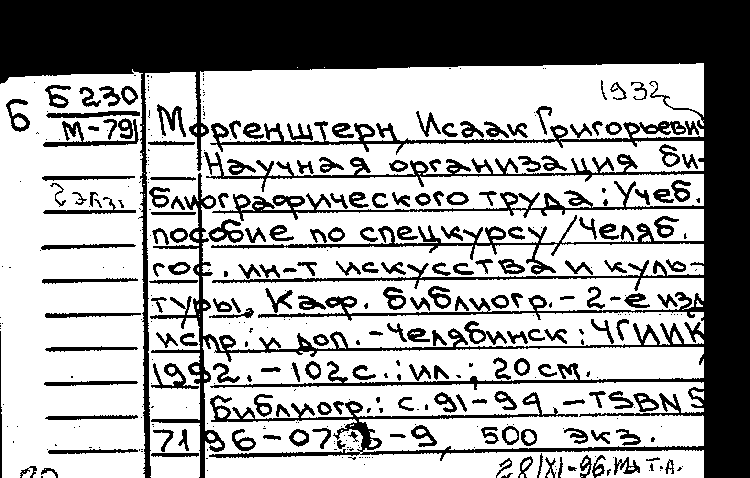 1932
Б Б 230
М-79 Моргенштерн, Исаак Григорьевич
Научная организация би-
2 экз. блиографического труда: Учеб.
пособие по спецкурсу / Челяб.
гос. ин-т искусства и куль-
туры. Каф. библиогр. - 2-е изд
испр. и доп. - Челябинск: ЧГИИК
1992. - 102 с.: ил.; 20 см.
Библиогр.: с. 91-94. - ISBN 5
7196-07 6-9, 500 экз.
28/XI-96.